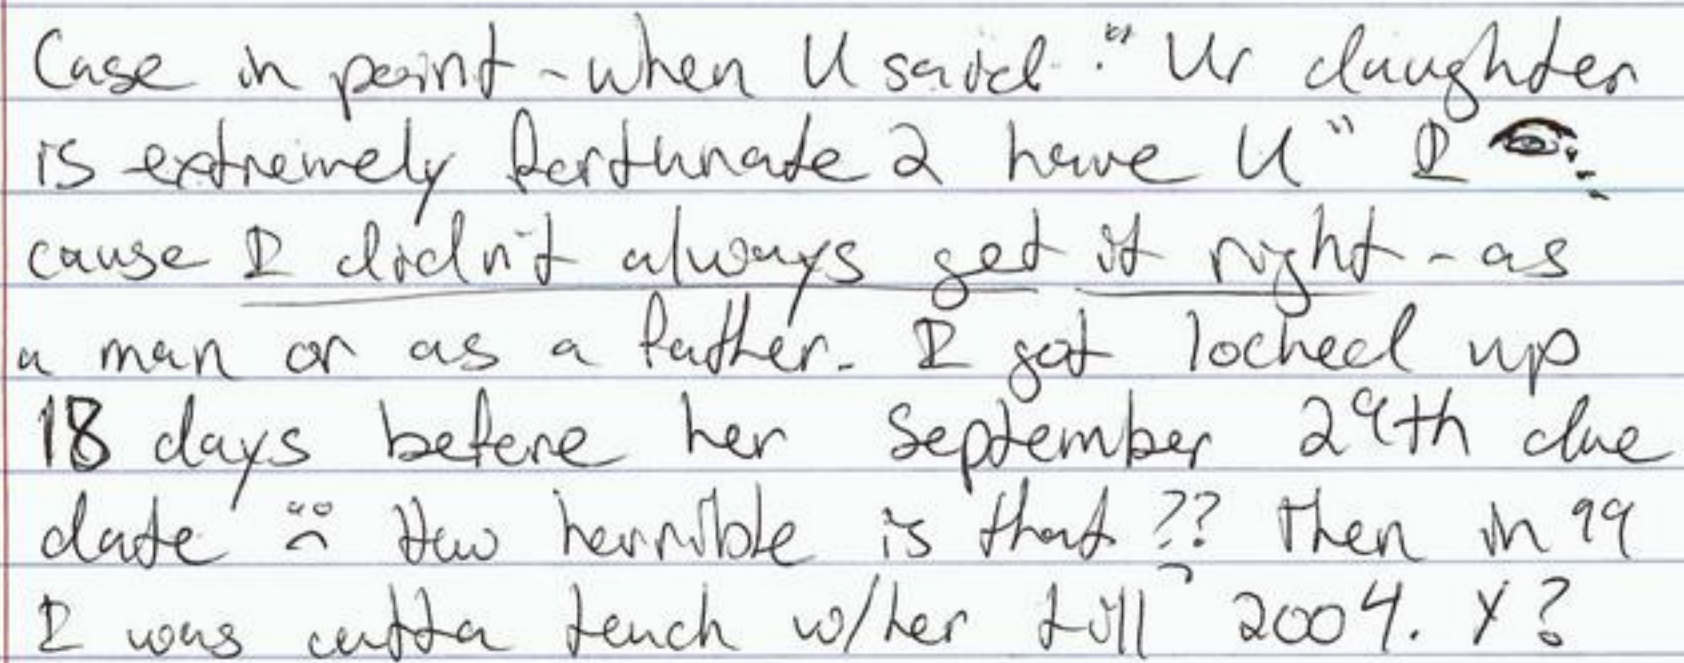 Case in point - when U said: "Ur daughter
is extremely fortunate 2 have U" I
cause I didn't always get it right - as
a man or as a father. I got locked up
18 days before her September 29th due
date :( How horrible is that?? Then in 99
I was outta touch w/her till 2004. Y?